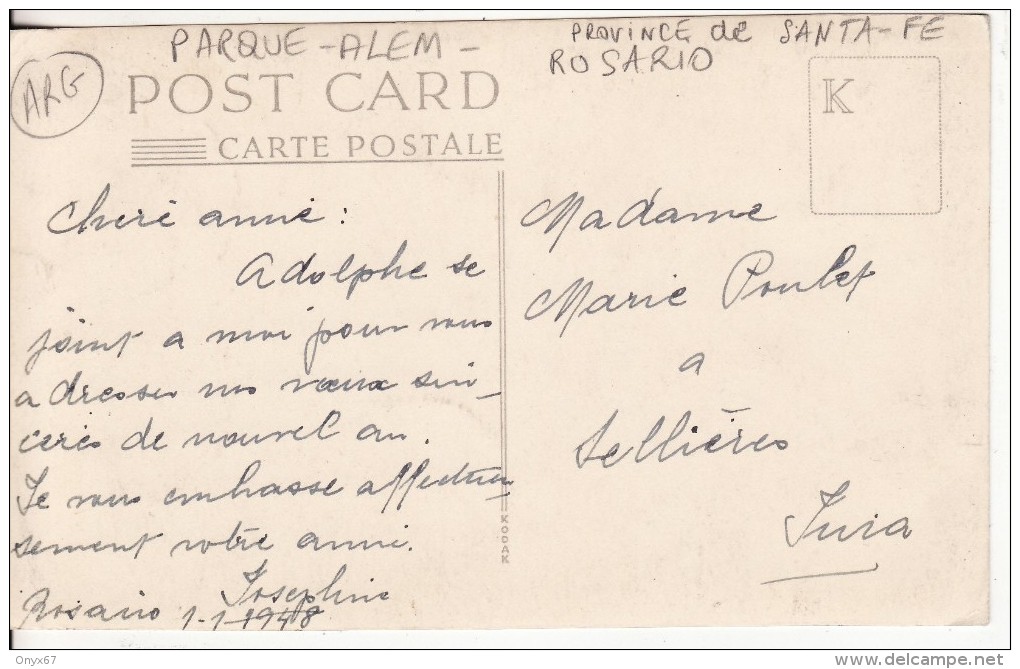 PARQUE - ALEM -
PROVINCE de SANTA-FE
ROSARIO
ARG
POST CARD
CARTE POSTALE
K
Cheré annie :
Adolphe se
joint a moi pour vous
adresser nos vœux sin-
cerès de nouvel an.
Je vous embrasse affectueu
sement votre amie.
Josephine
Rosario 1-1-1948
KODAK
Madame
Marie Poulet
a
Sellières
Jura
Onyx67
www.delcampe.net